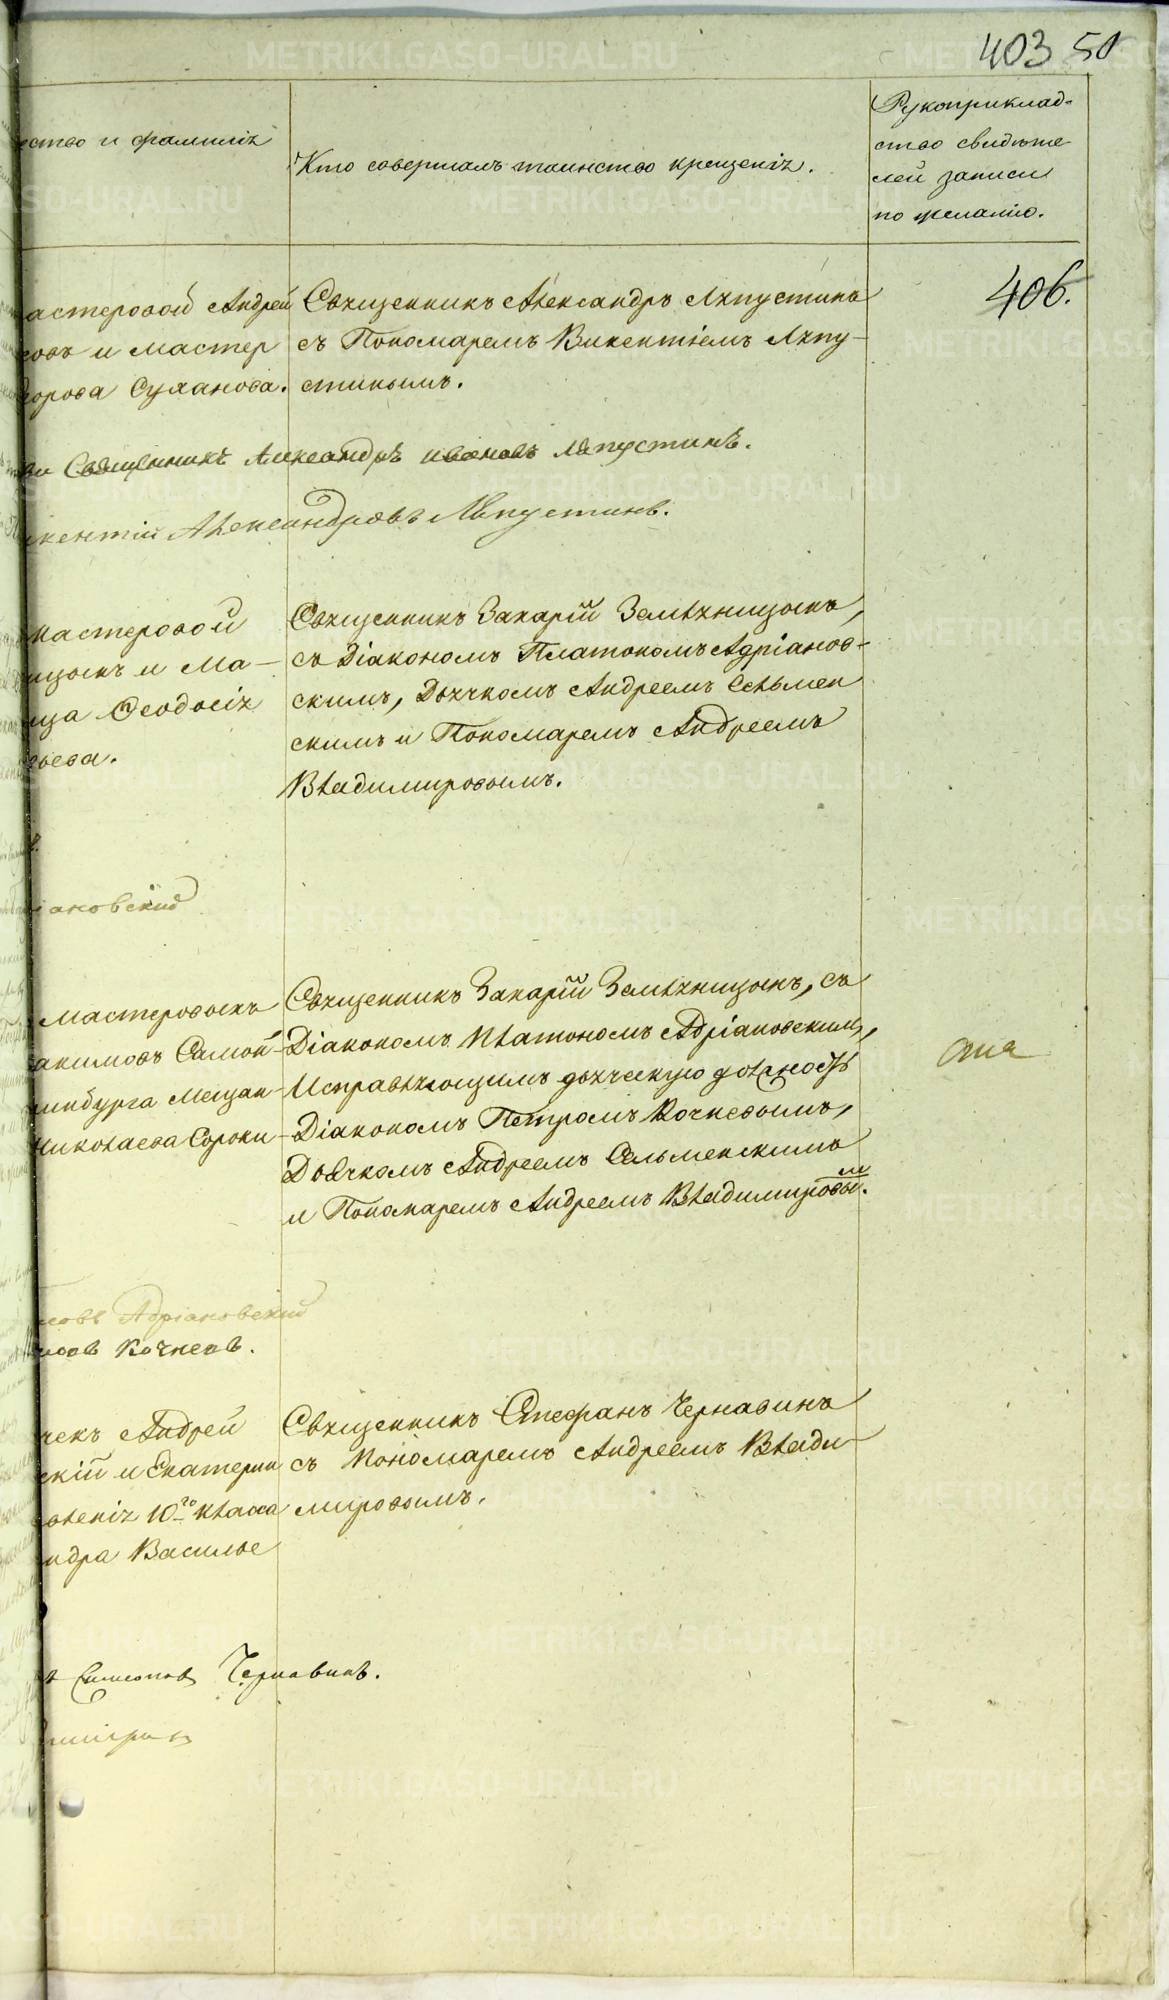 403 50
ество и фамилія
Кто совершалъ таинство крещенія.
Рукоприклад-
ство свидѣте
лей записи
по желанію.
406.
астеровой Андрей
овъ и мастер
дорова Суханова.
Священникъ Александръ Ляпустинъ
съ Пономаремъ Викентіемъ Ляпу-
стинымъ.
Священникъ Александръ Ивановъ Ляпустинъ.
кентій Александровъ Ляпустинъ.
мастеровой
ицынъ и Ма-
ица Ѳеодосія
ьева.
Священникъ Захарій Земляницынъ,
съ Діакономъ Платономъ Адріанов-
скимъ, Дьячкомъ Андреемъ Сельмен
скимъ и Пономаремъ Андреемъ
Владимировымъ.
іановскій
мастеровыхъ
акимовъ Самой-
инбурга Мещан-
Николаева Сороки-
Священникъ Захарій Земляницынъ, съ
Діакономъ Платономъ Адріановскимъ,
Исправляющимъ дьяческую должность
Діакономъ Петромъ Кочневымъ,
Дьячкомъ Андреемъ Сельменскимъ
и Пономаремъ Андреемъ Владимировым.
новъ Адріановскій
Кочневъ.
чекъ Андрей
скій и Екатерин
вленія 10го класса
ндра Василье
Священникъ Стефанъ Чернавинъ
съ Пономаремъ Андреемъ Влади-
мировымъ.
Симеоновъ Чернавинъ.
METRIKI.GASO-URAL.RU